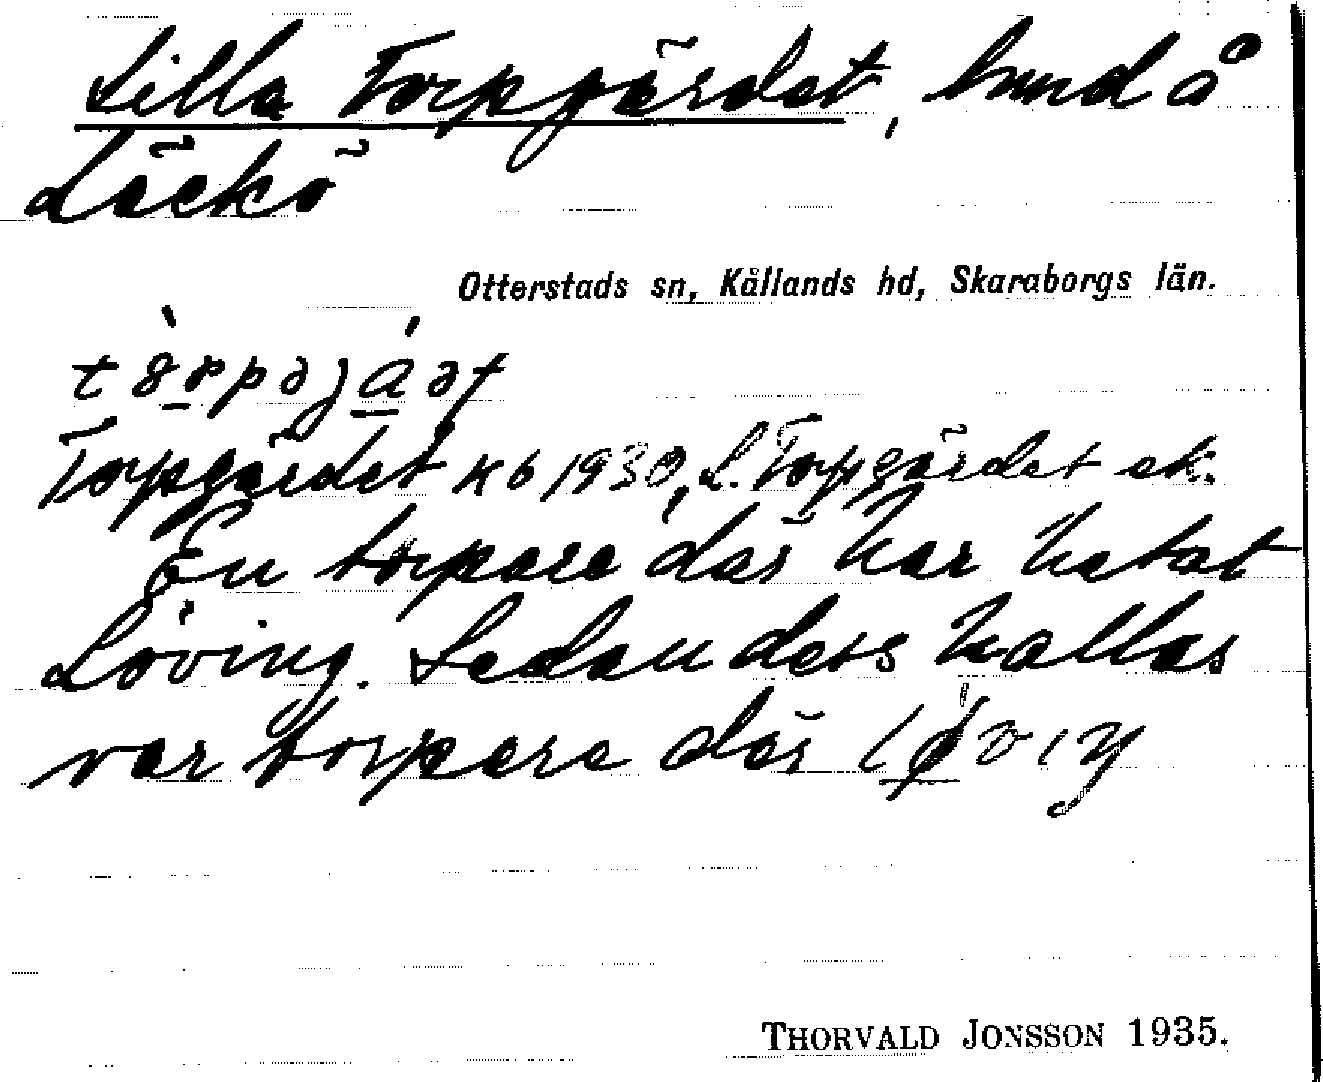 Lilla Torpgärdet, hmd å
Läckö
Otterstads sn, Kållands hd, Skaraborgs län.
Torpgärdet kb 1930, L. Torpgärdet ek.
En torpare där har hetat
Löving. Sedan dess kallas
var torpare där
THORVALD JONSSON 1935.